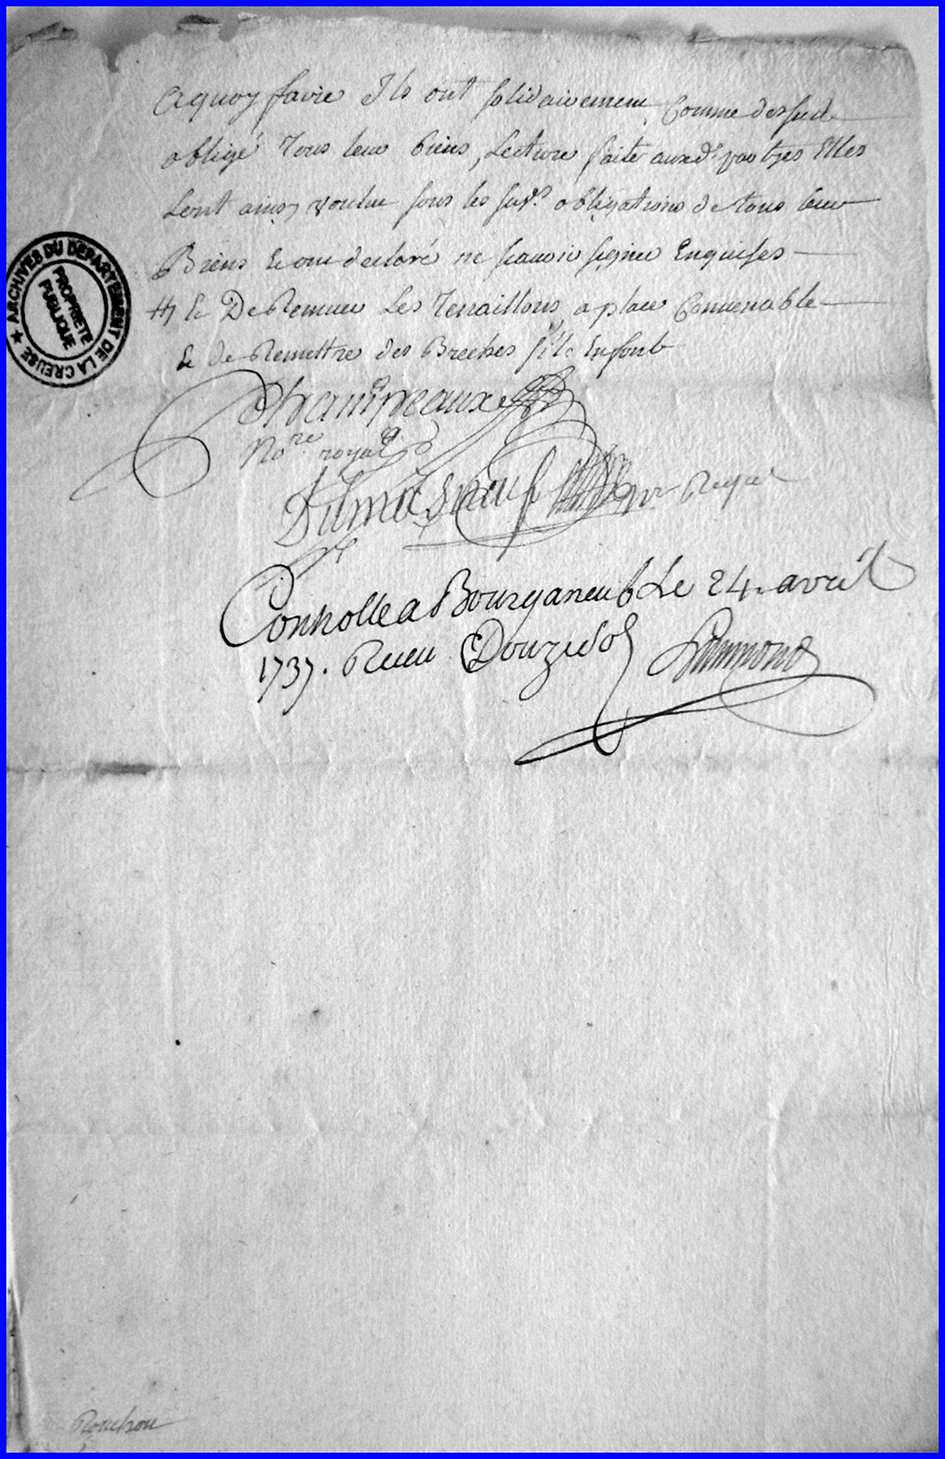 Aquoy faire Ils ont solidairement Comme dessus
obligé Tous leur biens, Lecture faite auxd. parties Elles
Lont ainsy voulu sous les susd. obligations de tous leur
Biens Et ont declaré ne scavoir signer Enquises
# Et De Remuer Les Terraillons a place Convenable
Et de Remettre des Breches s'il En font
Champeaux
No.re royal
Dumasneuf pr Requer
Controlle a Bourganeuf Le 24. avril
1737. Receu Douze sols
ARCHIVES DU DEPARTEMENT DE LA CREUSE ★
PROPRIETE
PUBLIQUE